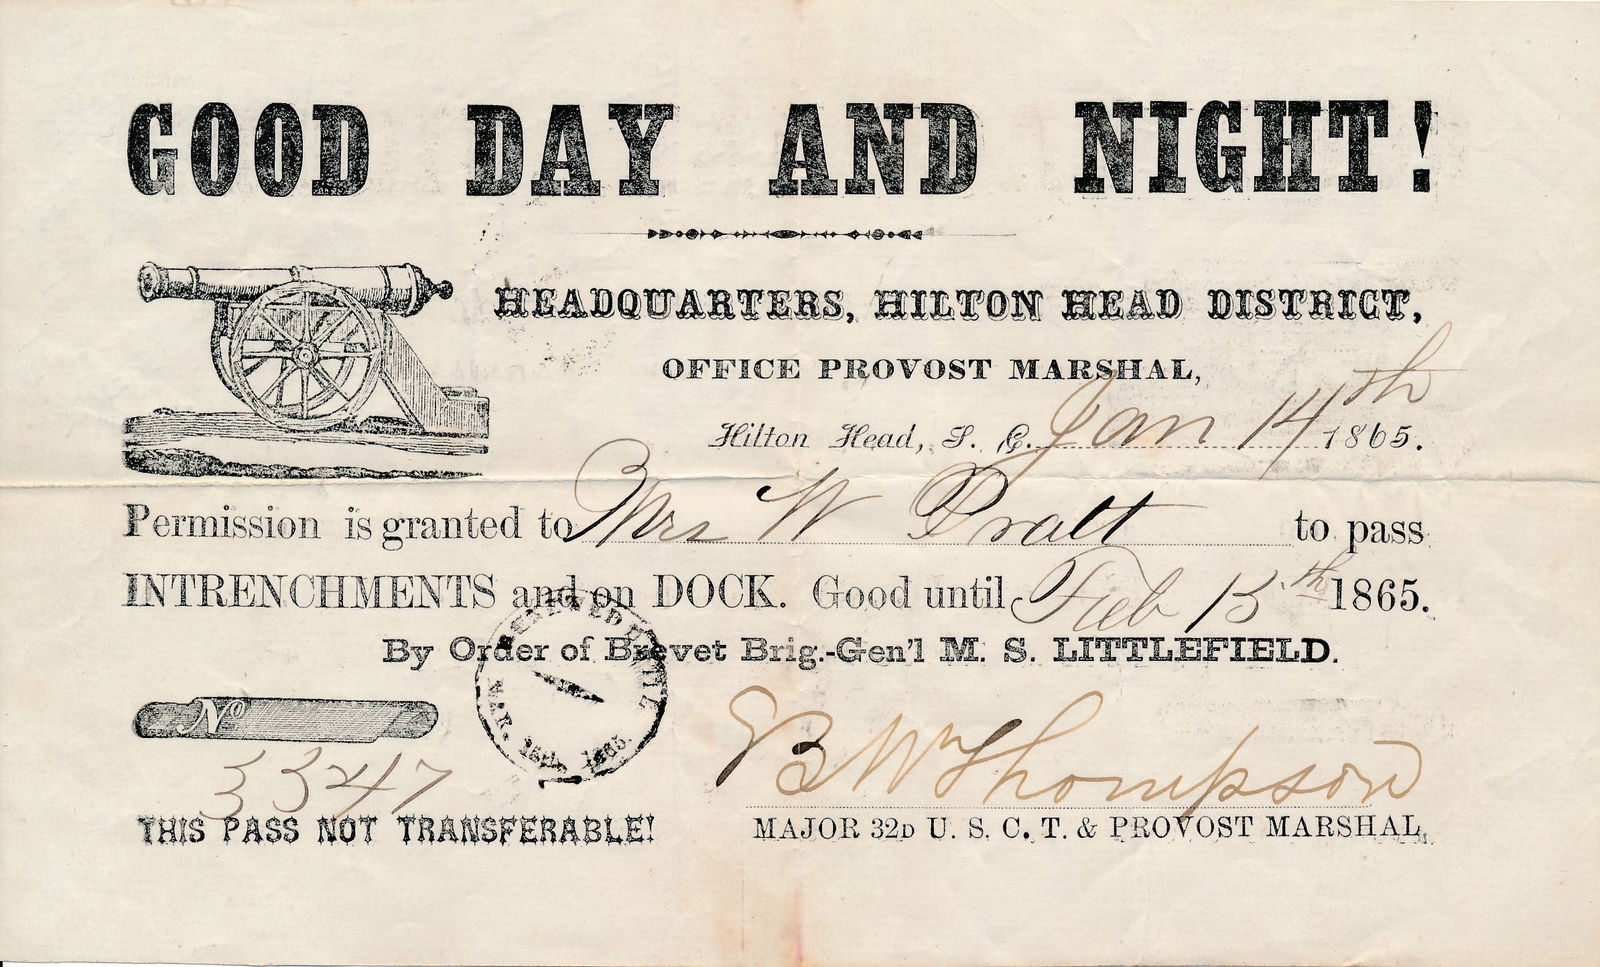 GOOD DAY AND NIGHT!
HEADQUARTERS, HILTON HEAD DISTRICT,
OFFICE PROVOST MARSHAL,
Hilton Head, S. C. Jan 14th 1865.
Permission is granted to Mrs W Pratt to pass
INTRENCHMENTS and on DOCK. Good until Feb 15th 1865.
By Order of Brevet Brig.-Gen'l M. S. LITTLEFIELD.
No
3347
THIS PASS NOT TRANSFERABLE!
MAR. 1865.
B Wm Thompson
MAJOR 32D U. S. C. T. & PROVOST MARSHAL.